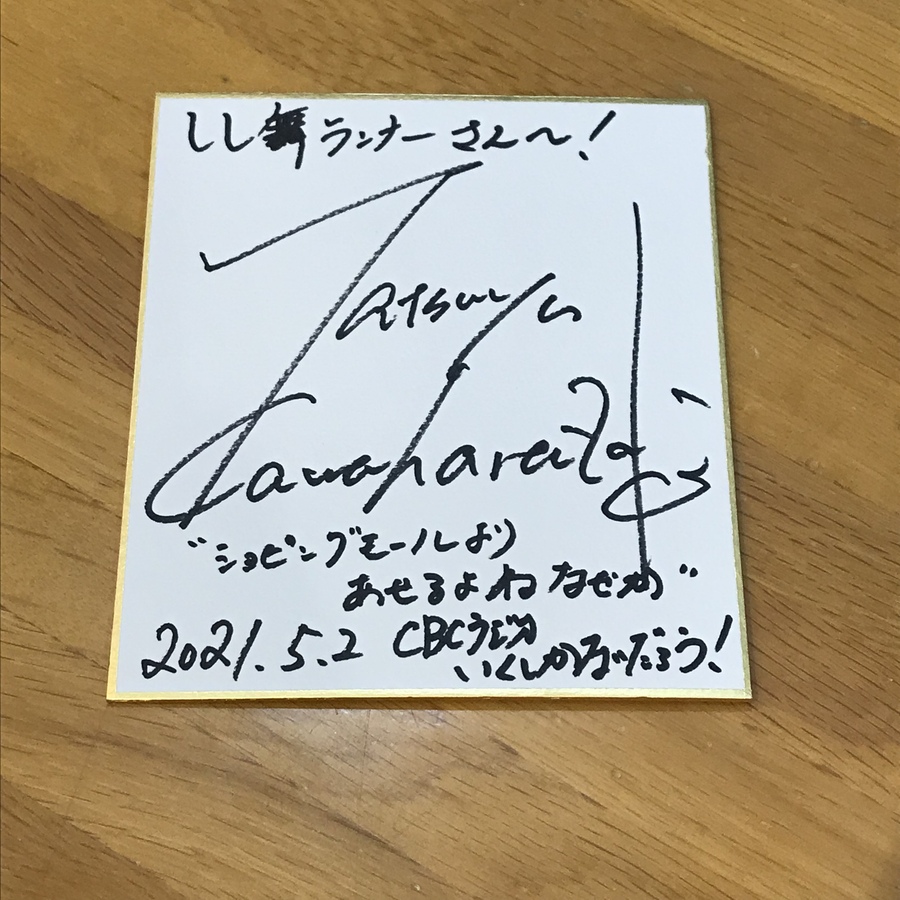 しし舞ランナーさんへ!
Tatsuya
Kawaharazaki
"ショピングモールより
あせるよね なぜか"
2021.5.2 CBCラジオ
いくしかないだろう!